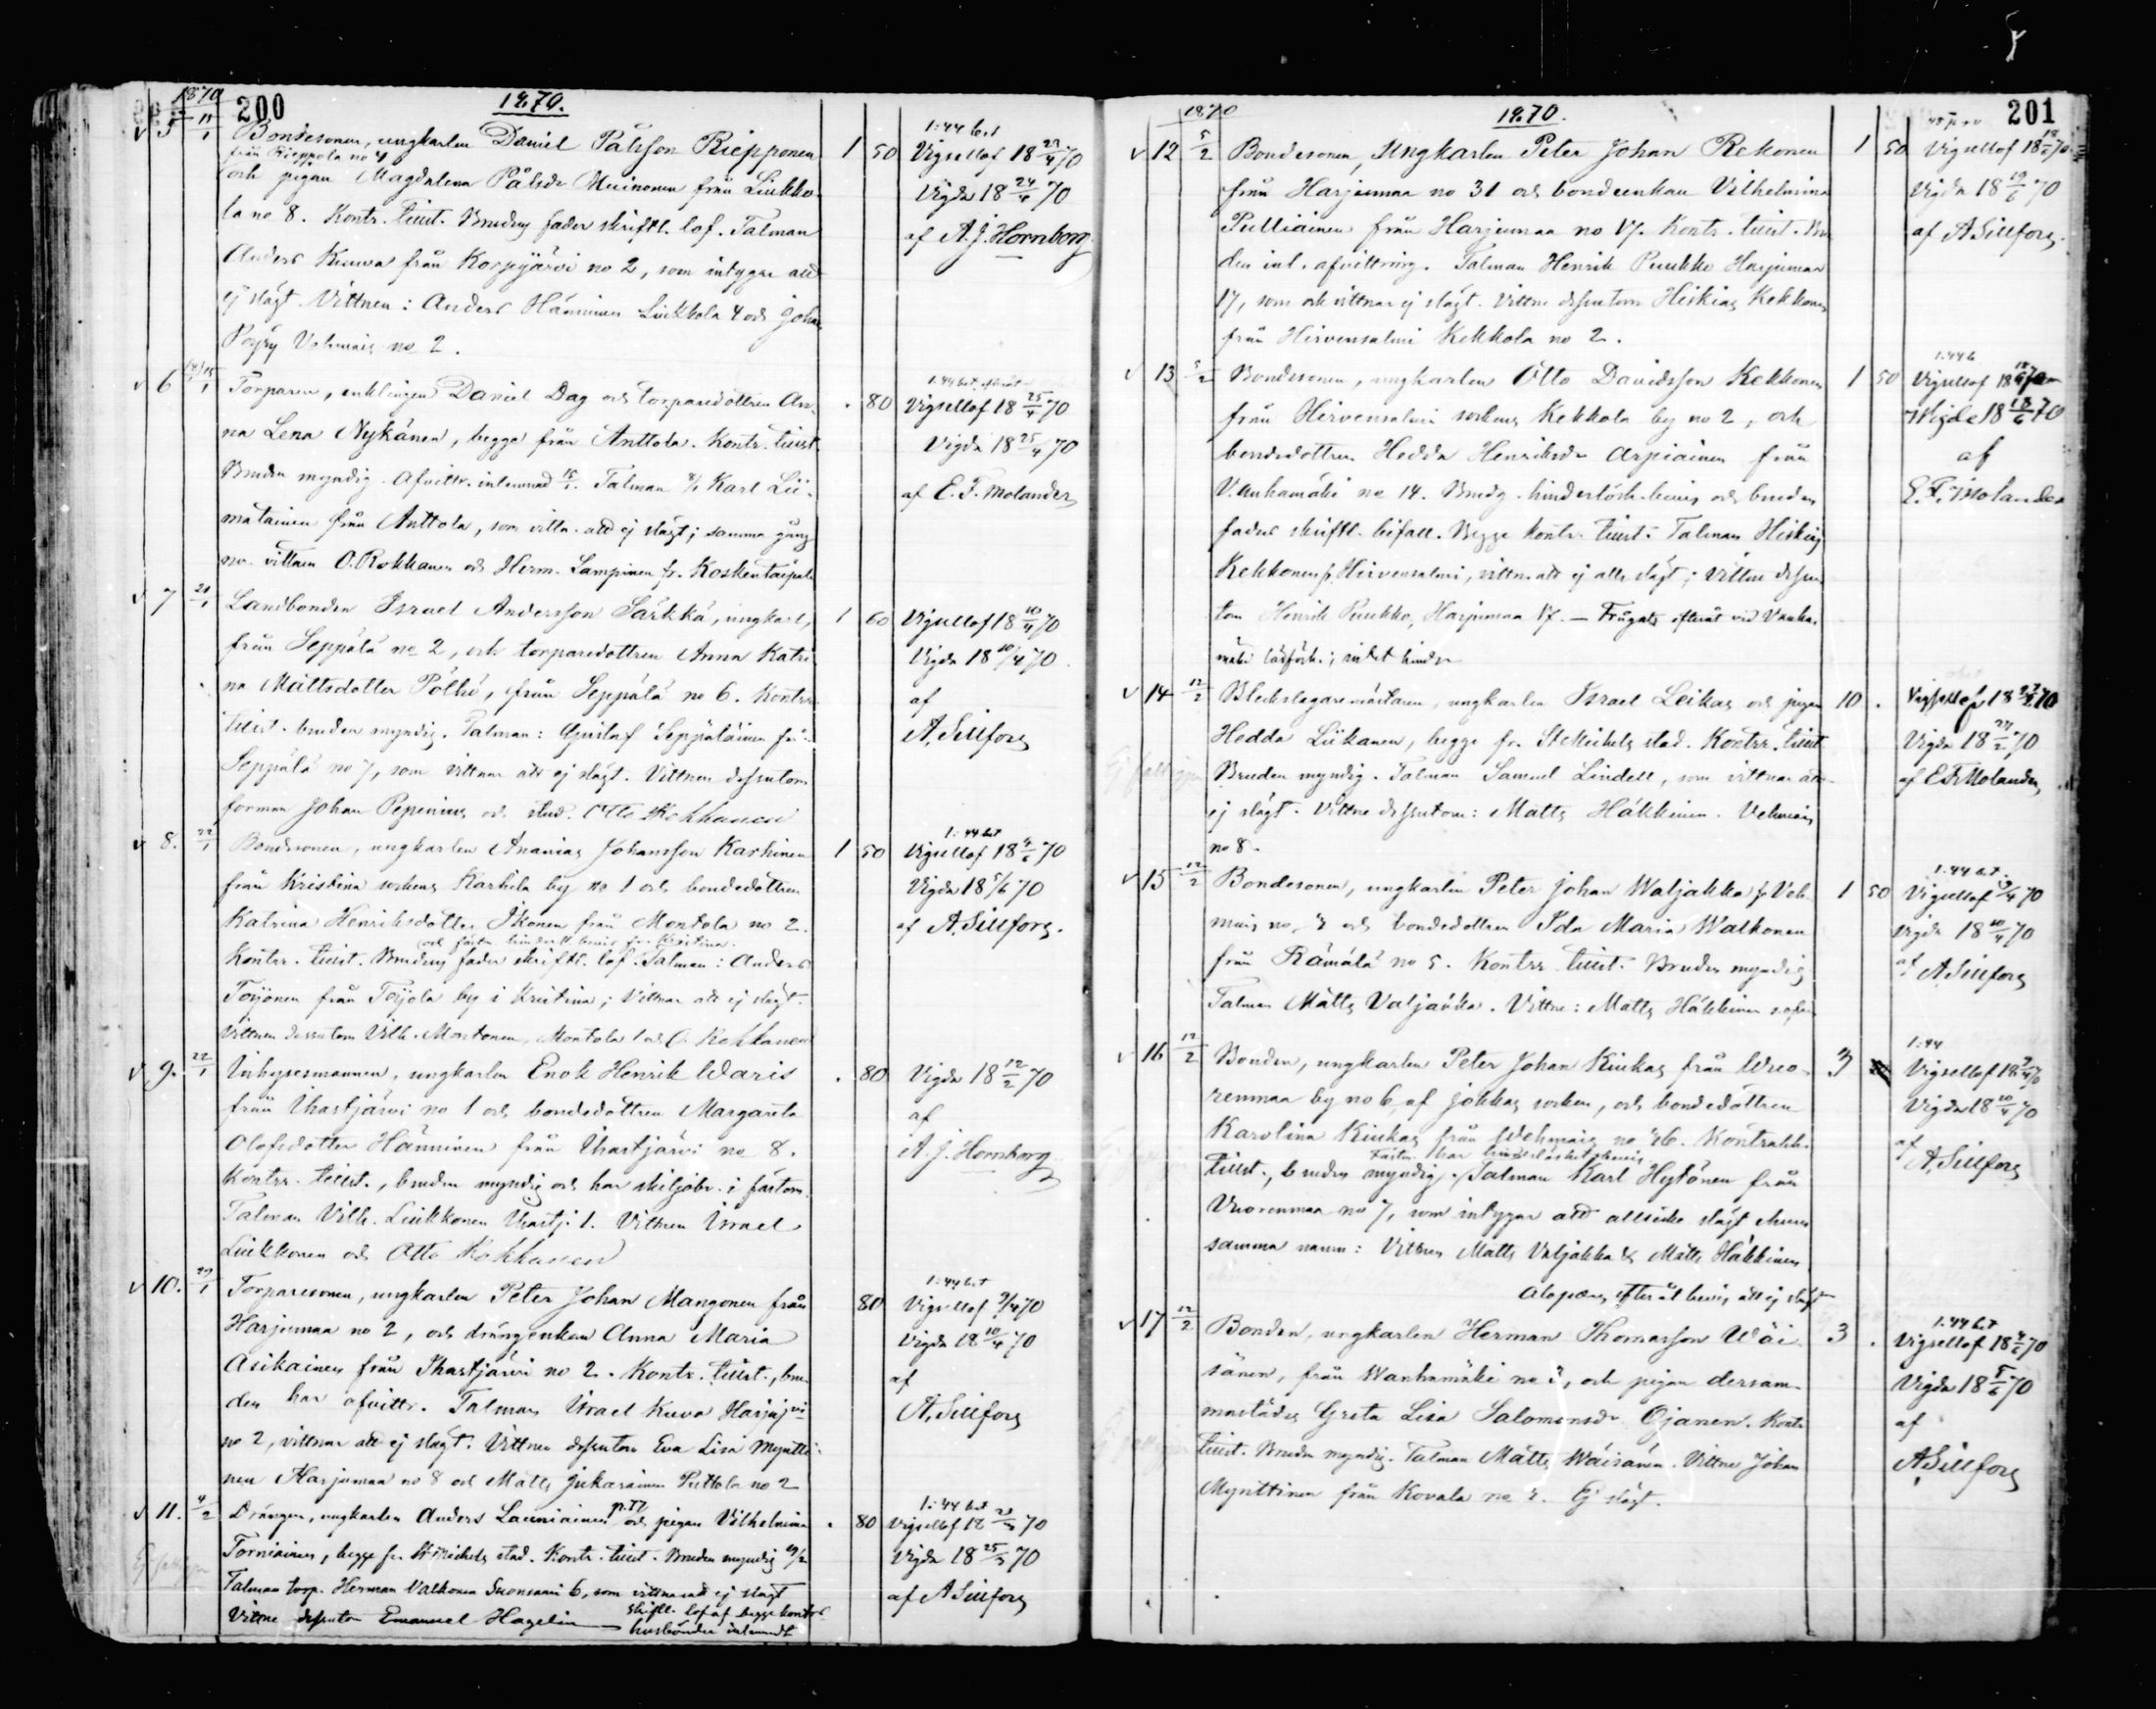 1870
200
1870.
v 5 11/1 Bondesonen, ungkarlen Daniel Pålsson Riepponen 1 50
från Rieppola no 4
och pigan Magdalena Pålsdr Muinonen från Liukko-
la no 8. Kontr. tiust. Brudens fader skriftl. lof. Talman
Anders Kuuva från Korpijärvi no 2, som intygar att
ej slägt. Vittnen: Anders Hänninen Liukkola 4 och Johan
Pöyry Vehmais no 2.
1:44 bet
Vigsellof 18 23/4 70
Vigda 18 24/4 70
af A. J. Hornborg
v 6 15/1 Torparen, enklingen Daniel Dag och torparedottren An- . 80
na Lena Nykänen, begge från Anttola. Kontr. tiust.
Bruden myndig. Afvittr. inlemnad 15/1. Talman Karl Lii-
matainen från Anttola, som vittn. att ej slägt; samma gång
no. vittnen O. Rokkanen och Herm. Lampinen fr. Koskentaipale
1:44 bet. efteråt
Vigsellof 18 25/4 70
Vigda 18 25/4 70
af E. F. Molander
v 7 21/1 Landbonden Israel Andersson Särkkä, ungkarl, 1 60
från Seppälä no 2, och torparedottren Anna Katri-
na Mattsdotter Pöllö, från Seppälä no 6. Kontr.
tiust. bruden myndig. Talman: Gustaf Seppäläinen från
Seppälä no 7, som vittnar att ej slägt. Vittnen dessutom
forman Johan Pepenius och stud. Otto Rokkanen
Vigsellof 18 10/4 70
Vigda 18 10/4 70
af
A. Sillfors
v 8. 22/1 Bondesonen, ungkarlen Ananias Johansson Karhinen 1 50
från Kristina sockens Karhila by no 1 och bondedottren
Katrina Henriksdotter Ikonen från Montola no 2.
och fästm. hinderl. bevis fr. Kristina.
Kontr. tiust. Brudens fader skriftl. lof. Talman: Anders
Toijonen från Toijola by i Kristina; Vittnar att ej slägt.
Vittnen dessutom Vilh. Montonen, Montola 1 och O. Rokkanen
1:44 bet
Vigsellof 18 4/6 70
Vigda 18 5/6 70
af A. Sillfors.
v 9. 22/1 Inhysesmannen, ungkarlen Enok Henrik Waris . 80
från Ihastjärvi no 1 och bondedottren Margareta
Olofsdotter Hänninen från Ihastjärvi no 8.
Kontr. tiust., bruden myndig och har skiljobr. i fästom.
Talman Vilh. Liukkonen Ihastj. 1. Vittnen Israel
Liukkonen och Otto Rokkanen
Vigda 18 12/2 70
af
A. J. Hornborg
v 10. 29/1 Torparesonen, ungkarlen Peter Johan Mangonen från 80
Harjumaa no 2, och drängenkan Anna Maria
Asikainen från Ihastjärvi no 2. Kontr. tiust., bru-
den har afvittr. Talman Israel Kuva Harjuj
no 2, vittnar att ej slägt. Vittnen dessutom Eva Lisa Myntti-
nen Harjumaa no 8 och Matts Jukarainen Puttola no 2
1:44 bet
Vigsellof 9/4 70
Vigda 18 10/4 70
af
A. Sillfors
v 11. 4/2 Drängen, ungkarlen Anders Launiainen och pigan Vilhelmina . 80
Torniainen, begge fr. St Michels stad. Kontr. tiust. Bruden myndig
Talman torp. Herman Valkonen Suonsaari 6, som vittnar att ej slägt
skiftl. lof af begge kontr.
Vittne dessutom Emanuel Hagelin — husbönder inlemnadt
1:44 bet
Vigsellof 18 70
Vigda 18 25/3 70
af A Sillfors
1870
1870.
201
v 12 5/2 Bondesonen, Ungkarlen Peter Johan Rekonen 1 50
från Harjumaa no 31 och bondeenkan Vilhelmina
Pulliainen från Harjumaa no 17. Kontr. tiust. Bru-
den inl. afvittring. Talman Henrik Puukko Harjumaa
17, som och vittnar ej slägt. Vittne dessutom Hiskias Kekkonen
från Hirvensalmi Kekkola no 2.
Vigsellof 18 18/6 70
Vigda 18 19/6 70
af A Sillfors.
v 13 5/2 Bondesonen, ungkarlen Otto Davidsson Kekkonen 1 50
från Hirvensalmi sockens Kekkola by no 2, och
bondedottren Hedda Henriksdr Arpiainen från
Vanhamäki no 14. Brudg. hinderlösh. bevis och bruden
faders skriftl. bifall. Begge kontr. tiust. Talman Hiskias
Kekkonen fr. Hirvensalmi, vittn. att ej alls slägt; Vittne dessu-
tom Henrik Puukko, Harjumaa 17. — Frågats efteråt vid Vanha-
mäki läsförh.; intet hinder
1:44 b
Vigsellof 18 70
Vigde 18 18/6 70
af
E. F. Molander
v 14 12/2 Bleckslagaremästaren, ungkarlen Israel Leikas och pigan 10 .
Hedda Liikanen, begge fr. St Michels stad. Kontr. tiust
Bruden myndig. Talman Samuel Lindell, som vittnar att
ej slägt. Vittne dessutom: Matts Häkkinen. Vehmais
no 8.
Vigsellof 18 27/2 70
Vigda 18 27/2 70
af E F Molander
v 15 12/2 Bondesonen, ungkarlen Peter Johan Waljakka fr Veh- 1 50
mais no. 4 och bondedottren Ida Maria Walkonen
från Rämälä no 5. Kontr. tiust. Bruden myndig
Talman Matts Valjakka. Vittne: Matts Häkkinen
1:44 bet.
Vigsellof 9/4 70
Vigda 18 10/4 70
af A. Sillfors
v 16 12/2 Bonden, ungkarlen Peter Johan Kiukas från Wuo- 3
renmaa by no 6, af Jokkas socken, och bondedottren
Karolina Kiukas från Wehmais no 46. Kontrakt.
Fästm. har hinderlöshetsbevis
tiust., bruden myndig. Talman Karl Hytönen från
Vuorenmaa no 7, som intygar att allsicke slägt ehuru
samma namn: Vittnen Matts Valjakka & Matts Häkkinen
Alopæus efteråt bevis att ej slägt
1:44
Vigsellof 18 9/4 70
Vigda 18 10/4 70
af
A. Sillfors
v 17 12/2 Bonden, ungkarlen Herman Thomasson Wäi- 3 .
sänen, från Wanhamäki no 3, och pigan dersam-
mastädes Greta Lisa Salomonsdr Ojanen. Kontr.
tiust. Bruden myndig. Talman Matts Wäisänen. Vittne Johan
Mynttinen från Kovala no 4. Ej slägt.
1:44 bet
Vigsellof 18 4/6 70
Vigda 18 5/6 70
af
A Sillfors